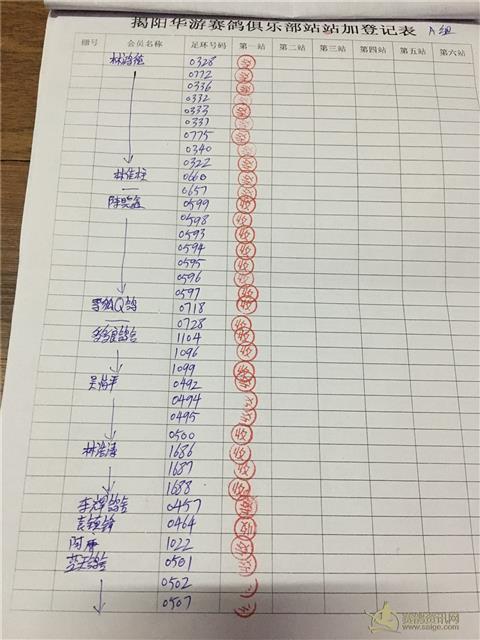 揭阳华游赛鸽俱乐部站站加登记表 A组
棚号 会员名称 足环号码 第一站 第二站 第三站 第四站 第五站 第六站
0328 收
0772 收
0336 收
0332
0333 收
0337
0775 收
0340
0322 收
林佳柱 0660 收
0657 收
0599 收
0598 收
0593 收
0594 收
0595 收
0596 收
0597 收
0718 收
0728 收
1104 收
1096 收
1099 收
0492 收
0494
0495
0500 收
1686 收
1687 收
1688 收
0457
0464
1022
0501
0502
0507
赛鸽资讯网
www.saige.com